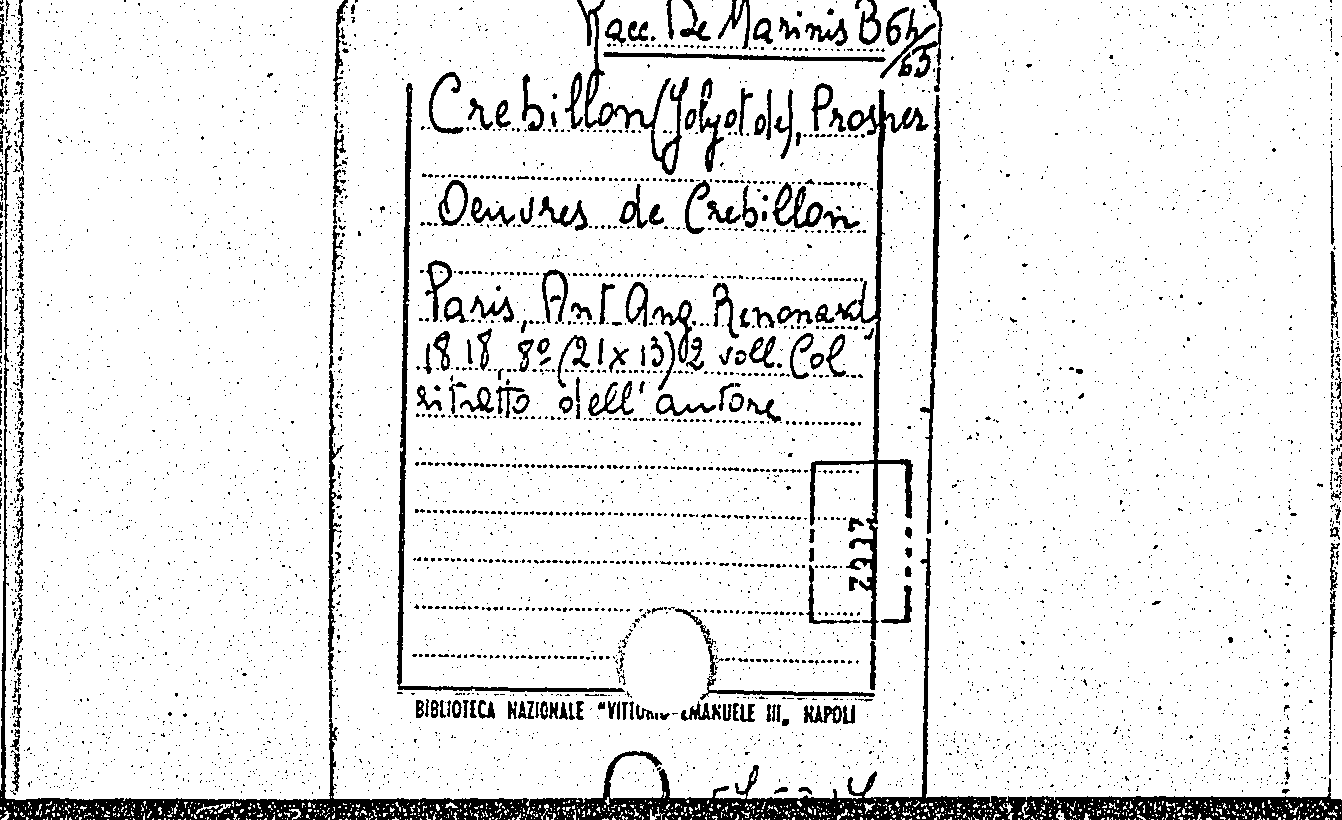 Racc. De Marinis B 64/65
Crebillon (Jolyot de), Prosper
Oeuvres de Crebillon
Paris, Ant. Aug. Renouard,
1818, 8º (21x13) 2 voll. Col
ritratto dell' autore
BIBLIOTECA NAZIONALE "VITTORIO EMANUELE III„ NAPOLI